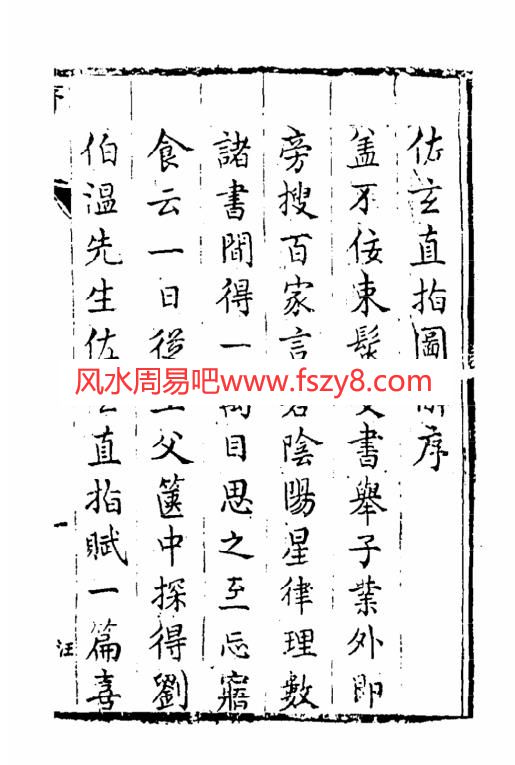 佑玄直指圖序
盖不佞束髮書舉子業外即
旁搜百家言陰陽星律理數
諸書間得一目思之至忘寤
食云一日從父篋中探得劉
伯溫先生佑直指賦一篇喜
汪
风水周易吧www.fszy8.com